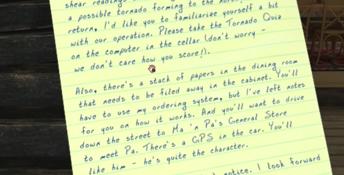 shear readings
a possible tornado forming to the
return, I'd like you to familiarize yourself a bit
with our operation. Please take the Tornado Quiz
on the computer in the cellar (don't worry -
we don't care how you score!).
Also, there's a stack of papers in the dining room
that needs to be filed away in the cabinet. You'll
have to use my ordering system, but I've left notes
for you on how it works. And you'll want to drive
down the street to Ma 'n Pa's General Store
to meet Pa. There's a GPS in the car. You'll
like him - he's quite the character.
notice. I look forward